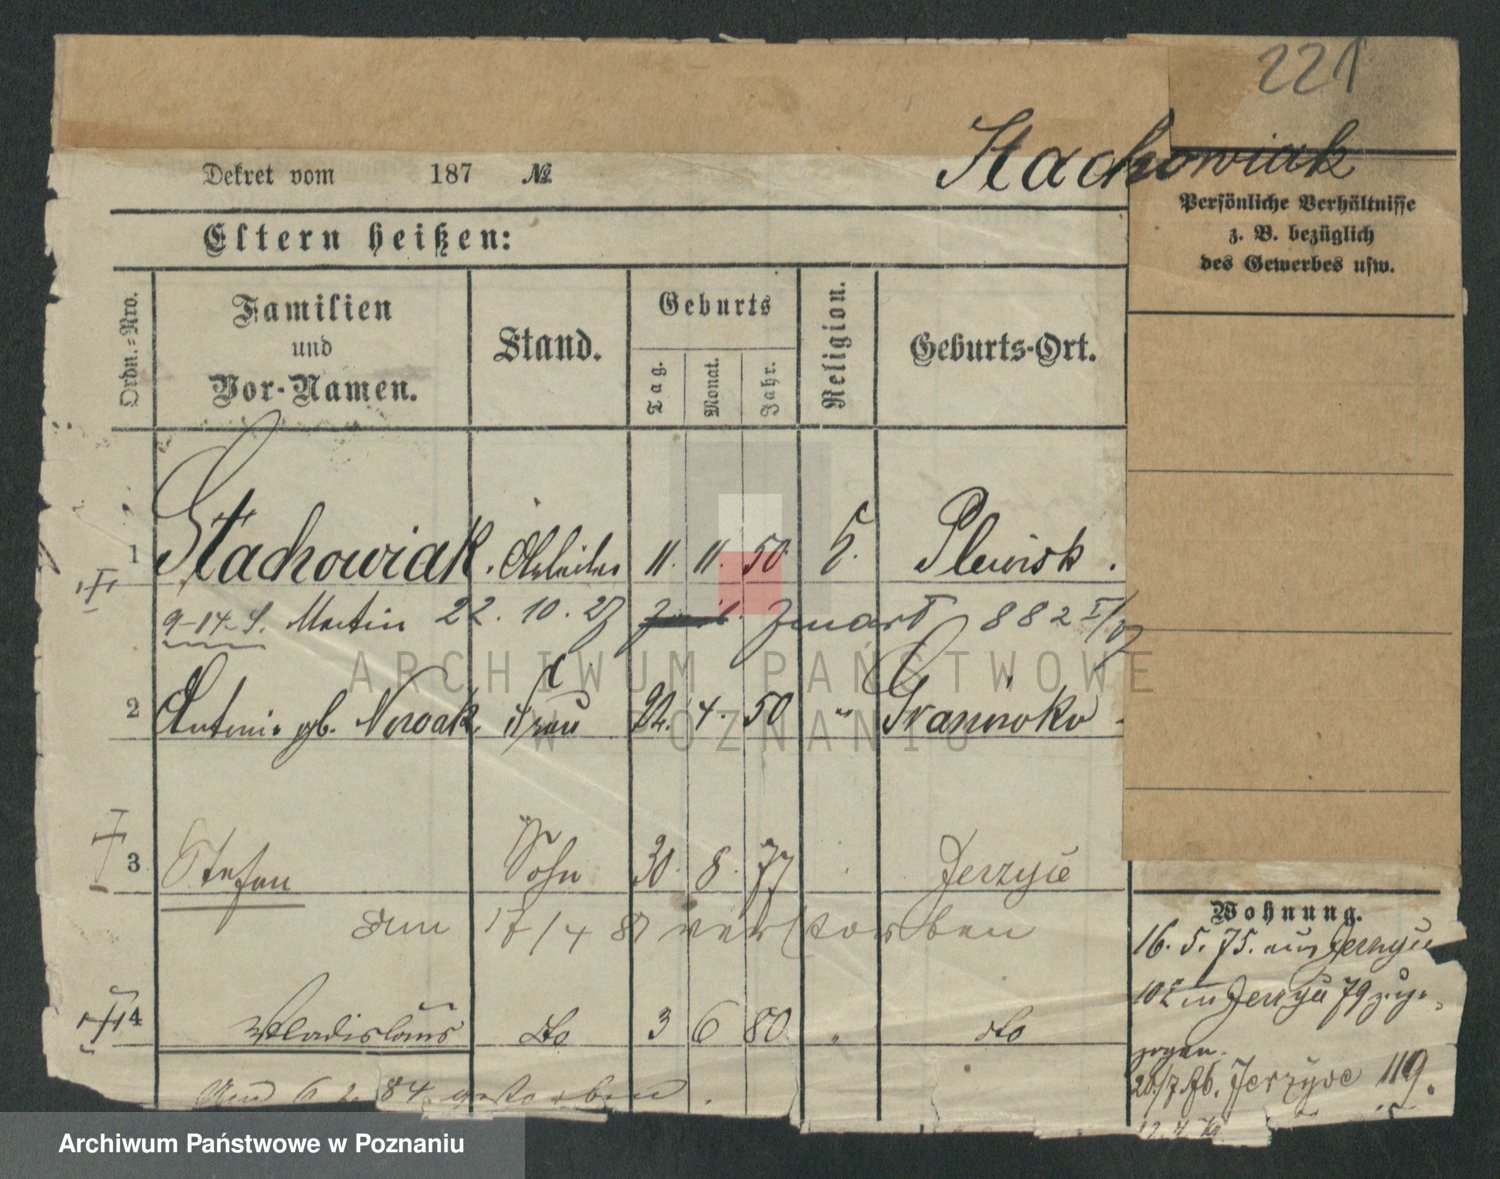 221
Stachowiak
Dekret vom 187 №
Persönliche Verhältnisse
z. B. bezüglich
des Gewerbes usw.
Eltern heißen:
Ordn.-Nro.
Familien
und
Vor-Namen.
Stand.
Geburts
Tag.
Monat.
Jahr.
Religion.
Geburts-Ort.
1 Stachowiak. Arbeiter 11. 11. 50. Plewisk.
Martin 22. 10. 27 882
2 Antonie gb. Nowak. Frau 22. 4. 50 "
3 Stefan Sohn 30. 8. 77 Jerzyce
am 17/4 81 verstorben
4 Wladislaus do 3 6 80. " do
Am 6 2. 84 gestorben.
Wohnung.
16. 5. 75. aus Jerzyce
Jerzyce 79 zuge-
zogen.
Jerzyce 119.
ARCHIWUM PAŃSTWOWE
W POZNANIU
Archiwum Państwowe w Poznaniu